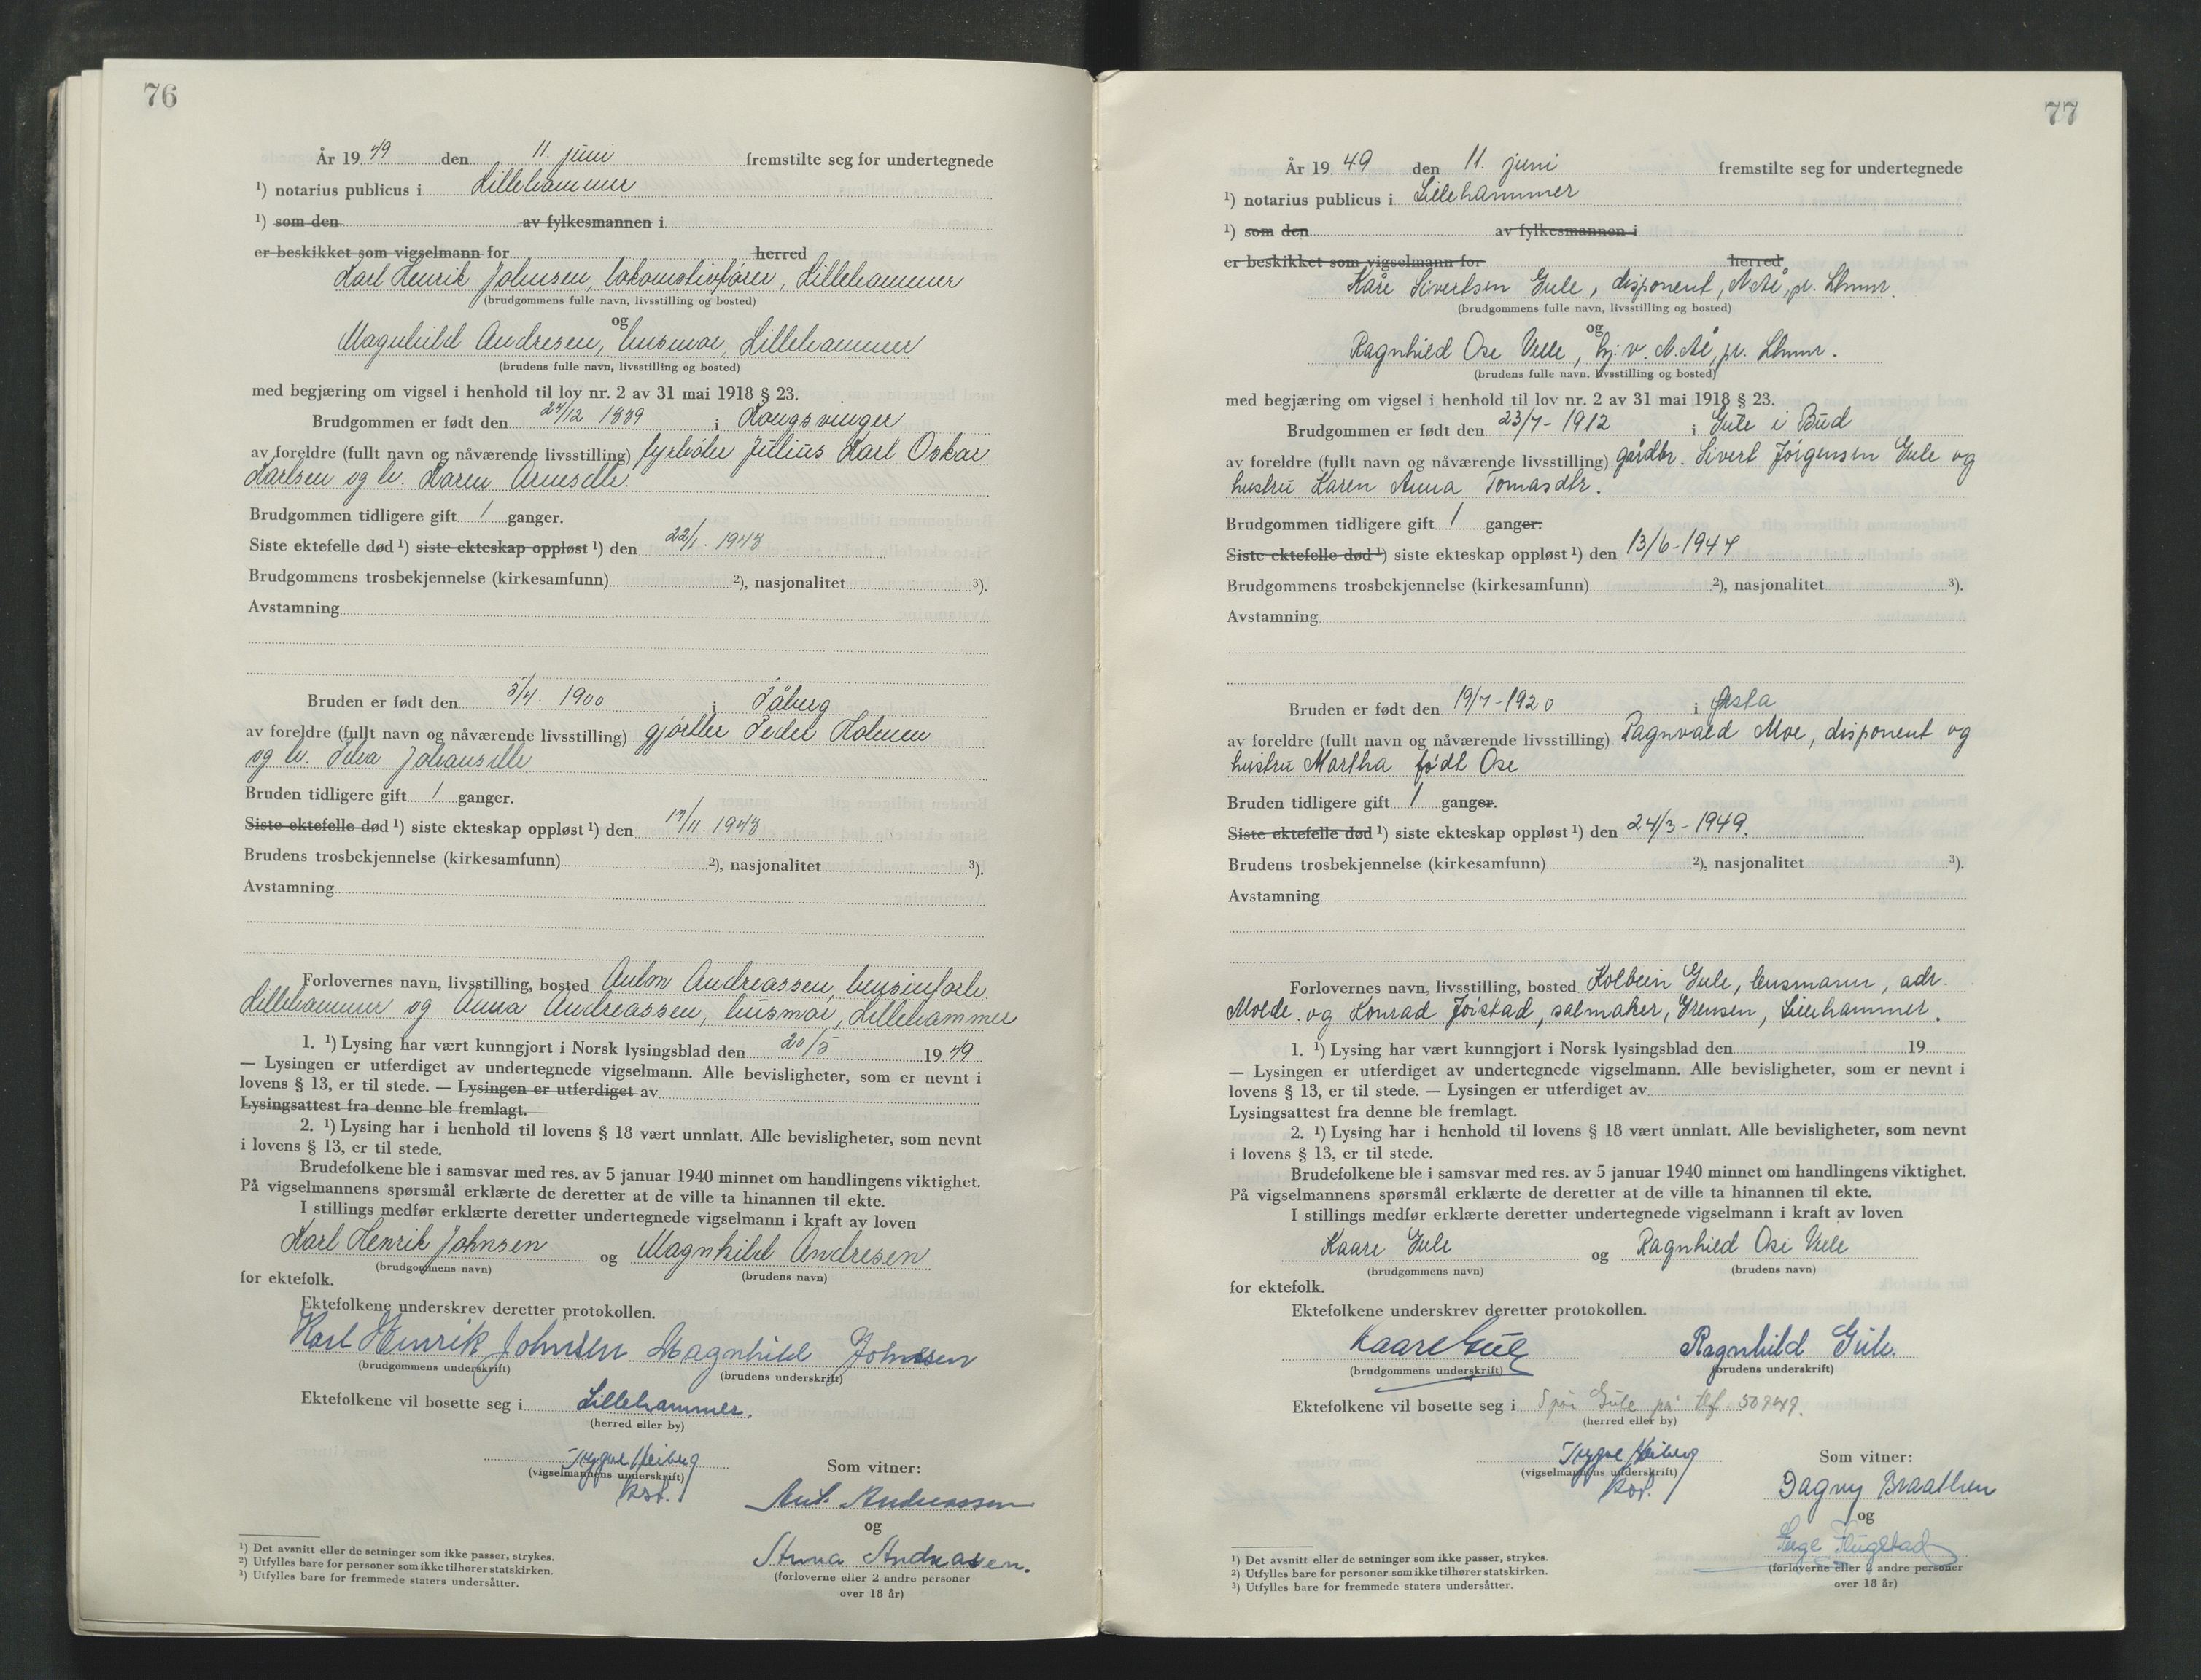 76
År 19 49 den 11. juni fremstilte seg for undertegnede
¹) notarius publicus i Lillehammer
¹) som den av fylkesmannen i
er beskikket som vigselmann for herred
Karl Henrik Johnsen, lokomotivfører, Lillehammer
(brudgommens fulle navn, livsstilling og bosted)
og
Magnhild Andresen, husmor, Lillehammer
(brudens fulle navn, livsstilling og bosted)
med begjæring om vigsel i henhold til lov nr. 2 av 31 mai 1918 § 23.
Brudgommen er født den 24/12 1889 i Kongsvinger
av foreldre (fullt navn og nåværende livsstilling) fyrbøter Julius Karl Oskar
Karlsen og h. Karen
Brudgommen tidligere gift 1 ganger.
Siste ektefelle død ¹) siste ekteskap oppløst ¹) den 22/1. 1948
Brudgommens trosbekjennelse (kirkesamfunn) ²), nasjonalitet ³).
Avstamning
Bruden er født den 5/4. 1900 i Fåberg
av foreldre (fullt navn og nåværende livsstilling) gjørtler Peder Holmen
og h. Johansdtr.
Bruden tidligere gift 1 ganger.
Siste ektefelle død ¹) siste ekteskap oppløst ¹) den 17/11. 1948
Brudens trosbekjennelse (kirkesamfunn) ²), nasjonalitet ³).
Avstamning
Forlovernes navn, livsstilling, bosted Anton Andreassen,
Lillehammer og Anna Andreassen, husmor, Lillehammer
1. ¹) Lysing har vært kunngjort i Norsk lysingsblad den 20/5 19 49
— Lysingen er utferdiget av undertegnede vigselmann. Alle bevisligheter, som er nevnt i
lovens § 13, er til stede. — Lysingen er utferdiget av
Lysingsattest fra denne ble fremlagt.
2. ¹) Lysing har i henhold til lovens § 18 vært unnlatt. Alle bevisligheter, som nevnt
i lovens § 13, er til stede.
Brudefolkene ble i samsvar med res. av 5 januar 1940 minnet om handlingens viktighet.
På vigselmannens spørsmål erklærte de deretter at de ville ta hinannen til ekte.
I stillings medfør erklærte deretter undertegnede vigselmann i kraft av loven
Karl Henrik Johnsen og Magnhild Andresen
(brudgommens navn) (brudens navn)
for ektefolk.
Ektefolkene underskrev deretter protokollen.
Karl Henrik Johnsen Magnhild Johnsen
(brudgommens underskrift) (brudens underskrift)
Ektefolkene vil bosette seg i Lillehammer.
(herred eller by)
Trygve Heiberg
(vigselmannens underskrift)
kst.
Som vitner:
Ant. Andreassen
og
Anna Andreasen.
(forloverne eller 2 andre personer
over 18 år)
¹) Det avsnitt eller de setninger som ikke passer, strykes.
²) Utfylles bare for personer som ikke tilhører statskirken.
³) Utfylles bare for fremmede staters undersåtter.
77
År 19 49 den 11. juni fremstilte seg for undertegnede
¹) notarius publicus i Lillehammer
¹) som den av fylkesmannen i
er beskikket som vigselmann for herred
Kåre Sivertsen Gule, disponent, N. Ål, pr. Lhmr.
(brudgommens fulle navn, livsstilling og bosted)
og
Ragnhild Ose Velle, hj.v. N. Ål, pr. Lhmr.
(brudens fulle navn, livsstilling og bosted)
med begjæring om vigsel i henhold til lov nr. 2 av 31 mai 1918 § 23.
Brudgommen er født den 23/7 - 1912 i Gule i Bud
av foreldre (fullt navn og nåværende livsstilling) gårdbr. Sivert Jørgensen Gule og
hustru Karen Anna Tomasdtr.
Brudgommen tidligere gift 1 ganger.
Siste ektefelle død ¹) siste ekteskap oppløst ¹) den 13/6 - 1947
Brudgommens trosbekjennelse (kirkesamfunn) ²), nasjonalitet ³).
Avstamning
Bruden er født den 19/7 - 1920 i Ørsta
av foreldre (fullt navn og nåværende livsstilling) Ragnvald Moe, disponent og
hustru Martha født Ose
Bruden tidligere gift 1 ganger.
Siste ektefelle død ¹) siste ekteskap oppløst ¹) den 24/3 - 1949.
Brudens trosbekjennelse (kirkesamfunn) ²), nasjonalitet ³).
Avstamning
Forlovernes navn, livsstilling, bosted Kolbein Gule, lensmann, adr.
Molde. og Konrad Jørstad, salmaker, Grensen, Lillehammer.
1. ¹) Lysing har vært kunngjort i Norsk lysingsblad den 19
— Lysingen er utferdiget av undertegnede vigselmann. Alle bevisligheter, som er nevnt i
lovens § 13, er til stede. — Lysingen er utferdiget av
Lysingsattest fra denne ble fremlagt.
2. ¹) Lysing har i henhold til lovens § 18 vært unnlatt. Alle bevisligheter, som nevnt
i lovens § 13, er til stede.
Brudefolkene ble i samsvar med res. av 5 januar 1940 minnet om handlingens viktighet.
På vigselmannens spørsmål erklærte de deretter at de ville ta hinannen til ekte.
I stillings medfør erklærte deretter undertegnede vigselmann i kraft av loven
Kaare Gule og Ragnhild Ose Velle
(brudgommens navn) (brudens navn)
for ektefolk.
Ektefolkene underskrev deretter protokollen.
Kaare Gule Ragnhild Gule.
(brudgommens underskrift) (brudens underskrift)
Ektefolkene vil bosette seg i Spør Gule på tlf. 50949.
(herred eller by)
Trygve Heiberg
(vigselmannens underskrift)
kst.
Som vitner:
Dagny Braathen
og
(forloverne eller 2 andre personer
over 18 år)
¹) Det avsnitt eller de setninger som ikke passer, strykes.
²) Utfylles bare for personer som ikke tilhører statskirken.
³) Utfylles bare for fremmede staters undersåtter.